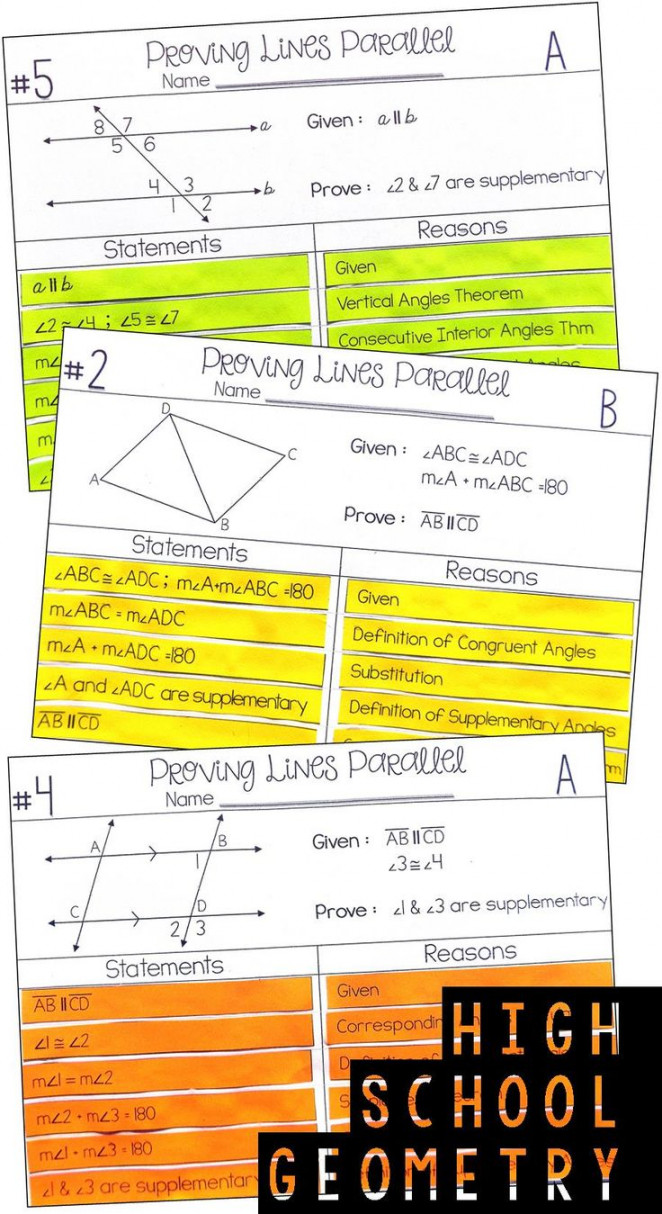 #5 Proving Lines Parallel A
Name
8 7
a
5 6
Given: a ∥ b
4 3
b
1 2
Prove: ∠2 & ∠7 are supplementary
Statements Reasons
a ∥ b Given
∠2 ≅ ∠4 ; ∠5 ≅ ∠7 Vertical Angles Theorem
m∠ Consecutive Interior Angles Thm
m∠ Angles
m
∠
#2 Proving Lines Parallel B
Name
D
C
A
B
Given: ∠ABC ≅ ∠ADC
m∠A + m∠ABC = 180
Prove: AB ∥ CD
Statements Reasons
∠ABC ≅ ∠ADC ; m∠A + m∠ABC = 180 Given
m∠ABC = m∠ADC Definition of Congruent Angles
m∠A + m∠ADC = 180 Substitution
∠A and ∠ADC are supplementary Definition of Supplementary Angles
AB ∥ CD
#4 Proving Lines Parallel A
Name
A B
1
C D
2 3
Given: AB ∥ CD
∠3 ≅ ∠4
Prove: ∠1 & ∠3 are supplementary
Statements Reasons
AB ∥ CD Given
∠1 ≅ ∠2
m∠1 = m∠2
m∠2 + m∠3 = 180
m∠1 + m∠3 = 180
∠1 & ∠3 are supplementary
HIGH
SCHOOL
GEOMETRY